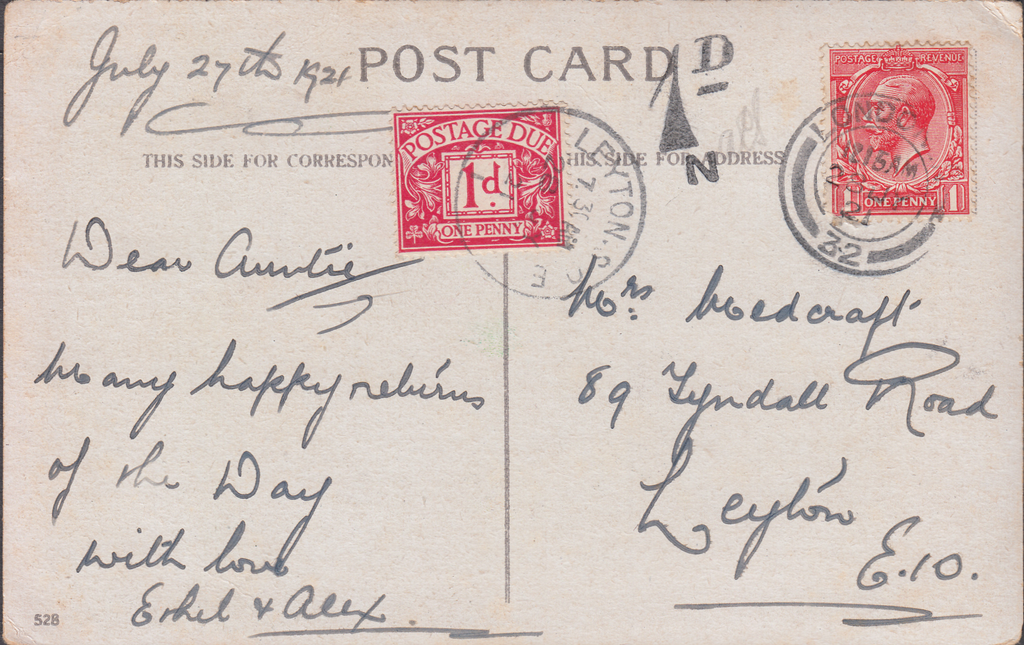 July 27th 1921
POST CARD
1D
N
POSTAGE REVENUE
1 ONE PENNY 1
POSTAGE DUE
1d.
ONE PENNY
LONDON
12.15 AM
21
32
LEYTON. S.O.
7.30 AM
E
THIS SIDE FOR CORRESPON
THIS SIDE FOR ADDRESS
Dear Auntie
Many happy returns
of the Day
with love
Ethel & Alex.
Mrs. Medcraft
89 Tyndall Road
Leyton
E.10.
528